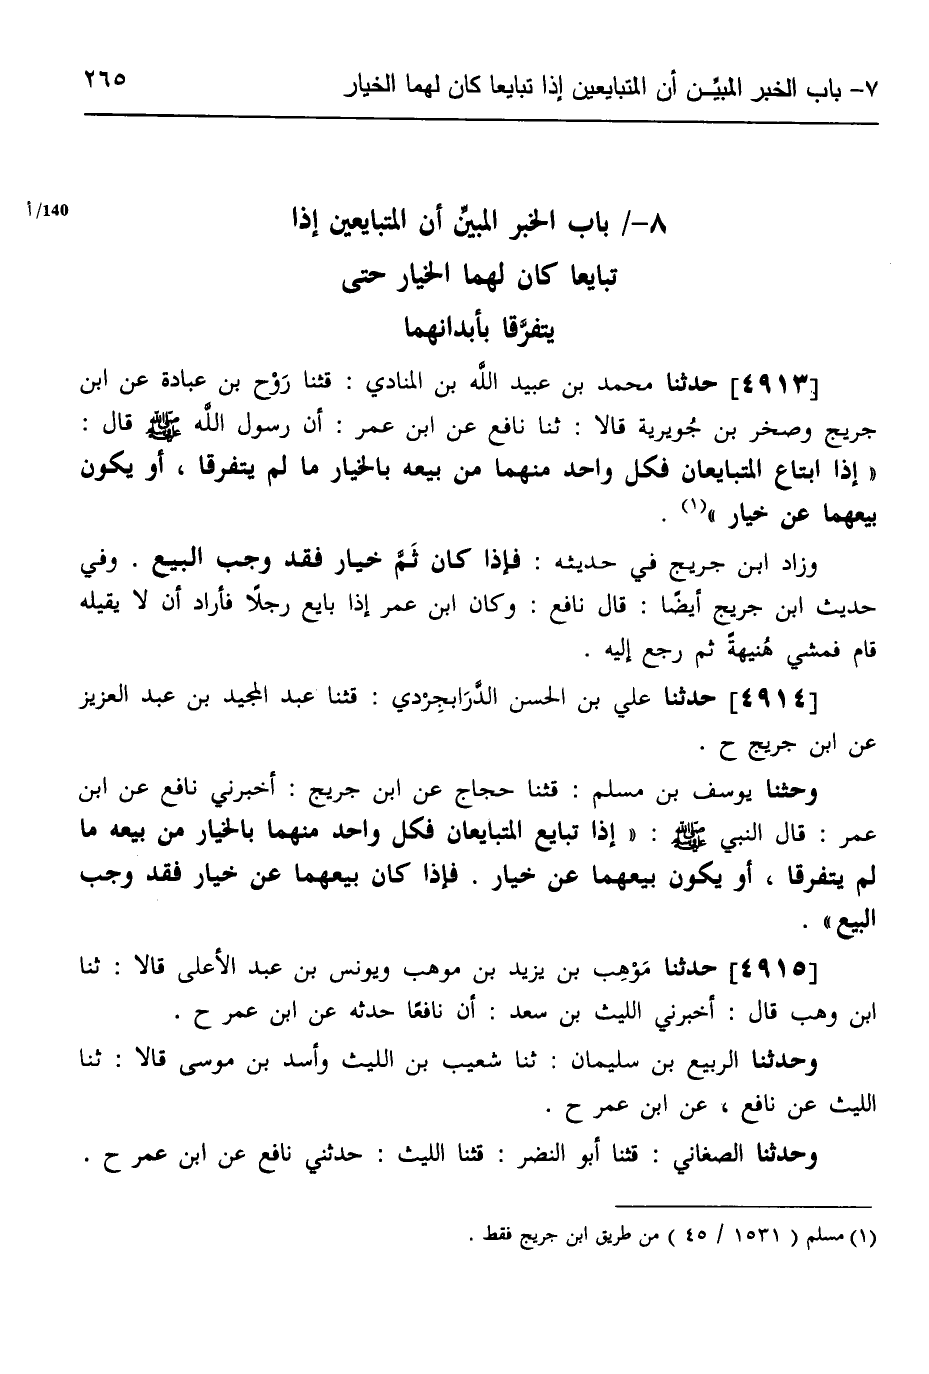 ٧- باب الخبر المبيِّـن أن المتبايعين إذا تبايعا كان لهما الخيار ٢٦٥
140/أ
٨-/ باب الخبر المبينِّ أن المتبايعين إذا
تبايعا كان لهما الخيار حتى
يتفرَّقا بأبدانهما
[٤٩١٣] حدثنا محمد بن عبيد اللَّه بن المنادي : قثنا رَوْح بن عبادة عن ابن
جريج وصخر بن جُويرية قالا : ثنا نافع عن ابن عمر : أن رسول اللَّه ﷺ قال :
« إذا ابتاع المتبايعان فكل واحد منهما من بيعه بالخيار ما لم يتفرقا ، أو يكون
بيعهما عن خيار »(١) .
وزاد ابن جريج في حديثه : فإذا كان ثَمَّ خيار فقد وجب البيع . وفي
حديث ابن جريج أيضًا : قال نافع : وكان ابن عمر إذا بايع رجلًا فأراد أن لا يقيله
قام فمشي هُنيهةً ثم رجع إليه .
[٤٩١٤] حدثنا علي بن الحسن الدَّرَابجِرْدي : قثنا عبد المجيد بن عبد العزيز
عن ابن جريج ح .
وحثنا يوسف بن مسلم : قثنا حجاج عن ابن جريج : أخبرني نافع عن ابن
عمر : قال النبي ﷺ : « إذا تبايع المتبايعان فكل واحد منهما بالخيار من بيعه ما
لم يتفرقا ، أو يكون بيعهما عن خيار . فإذا كان بيعهما عن خيار فقد وجب
البيع» .
[٤٩١٥] حدثنا مَوْهِب بن يزيد بن موهب ويونس بن عبد الأعلى قالا : ثنا
ابن وهب قال : أخبرني الليث بن سعد : أن نافعًا حدثه عن ابن عمر ح .
وحدثنا الربيع بن سليمان : ثنا شعيب بن الليث وأسد بن موسى قالا : ثنا
الليث عن نافع ، عن ابن عمر ح .
وحدثنا الصغاني : قثنا أبو النضر : قثنا الليث : حدثني نافع عن ابن عمر ح .
(١) مسلم ( ١٥٣١ / ٤٥ ) من طريق ابن جريج فقط .